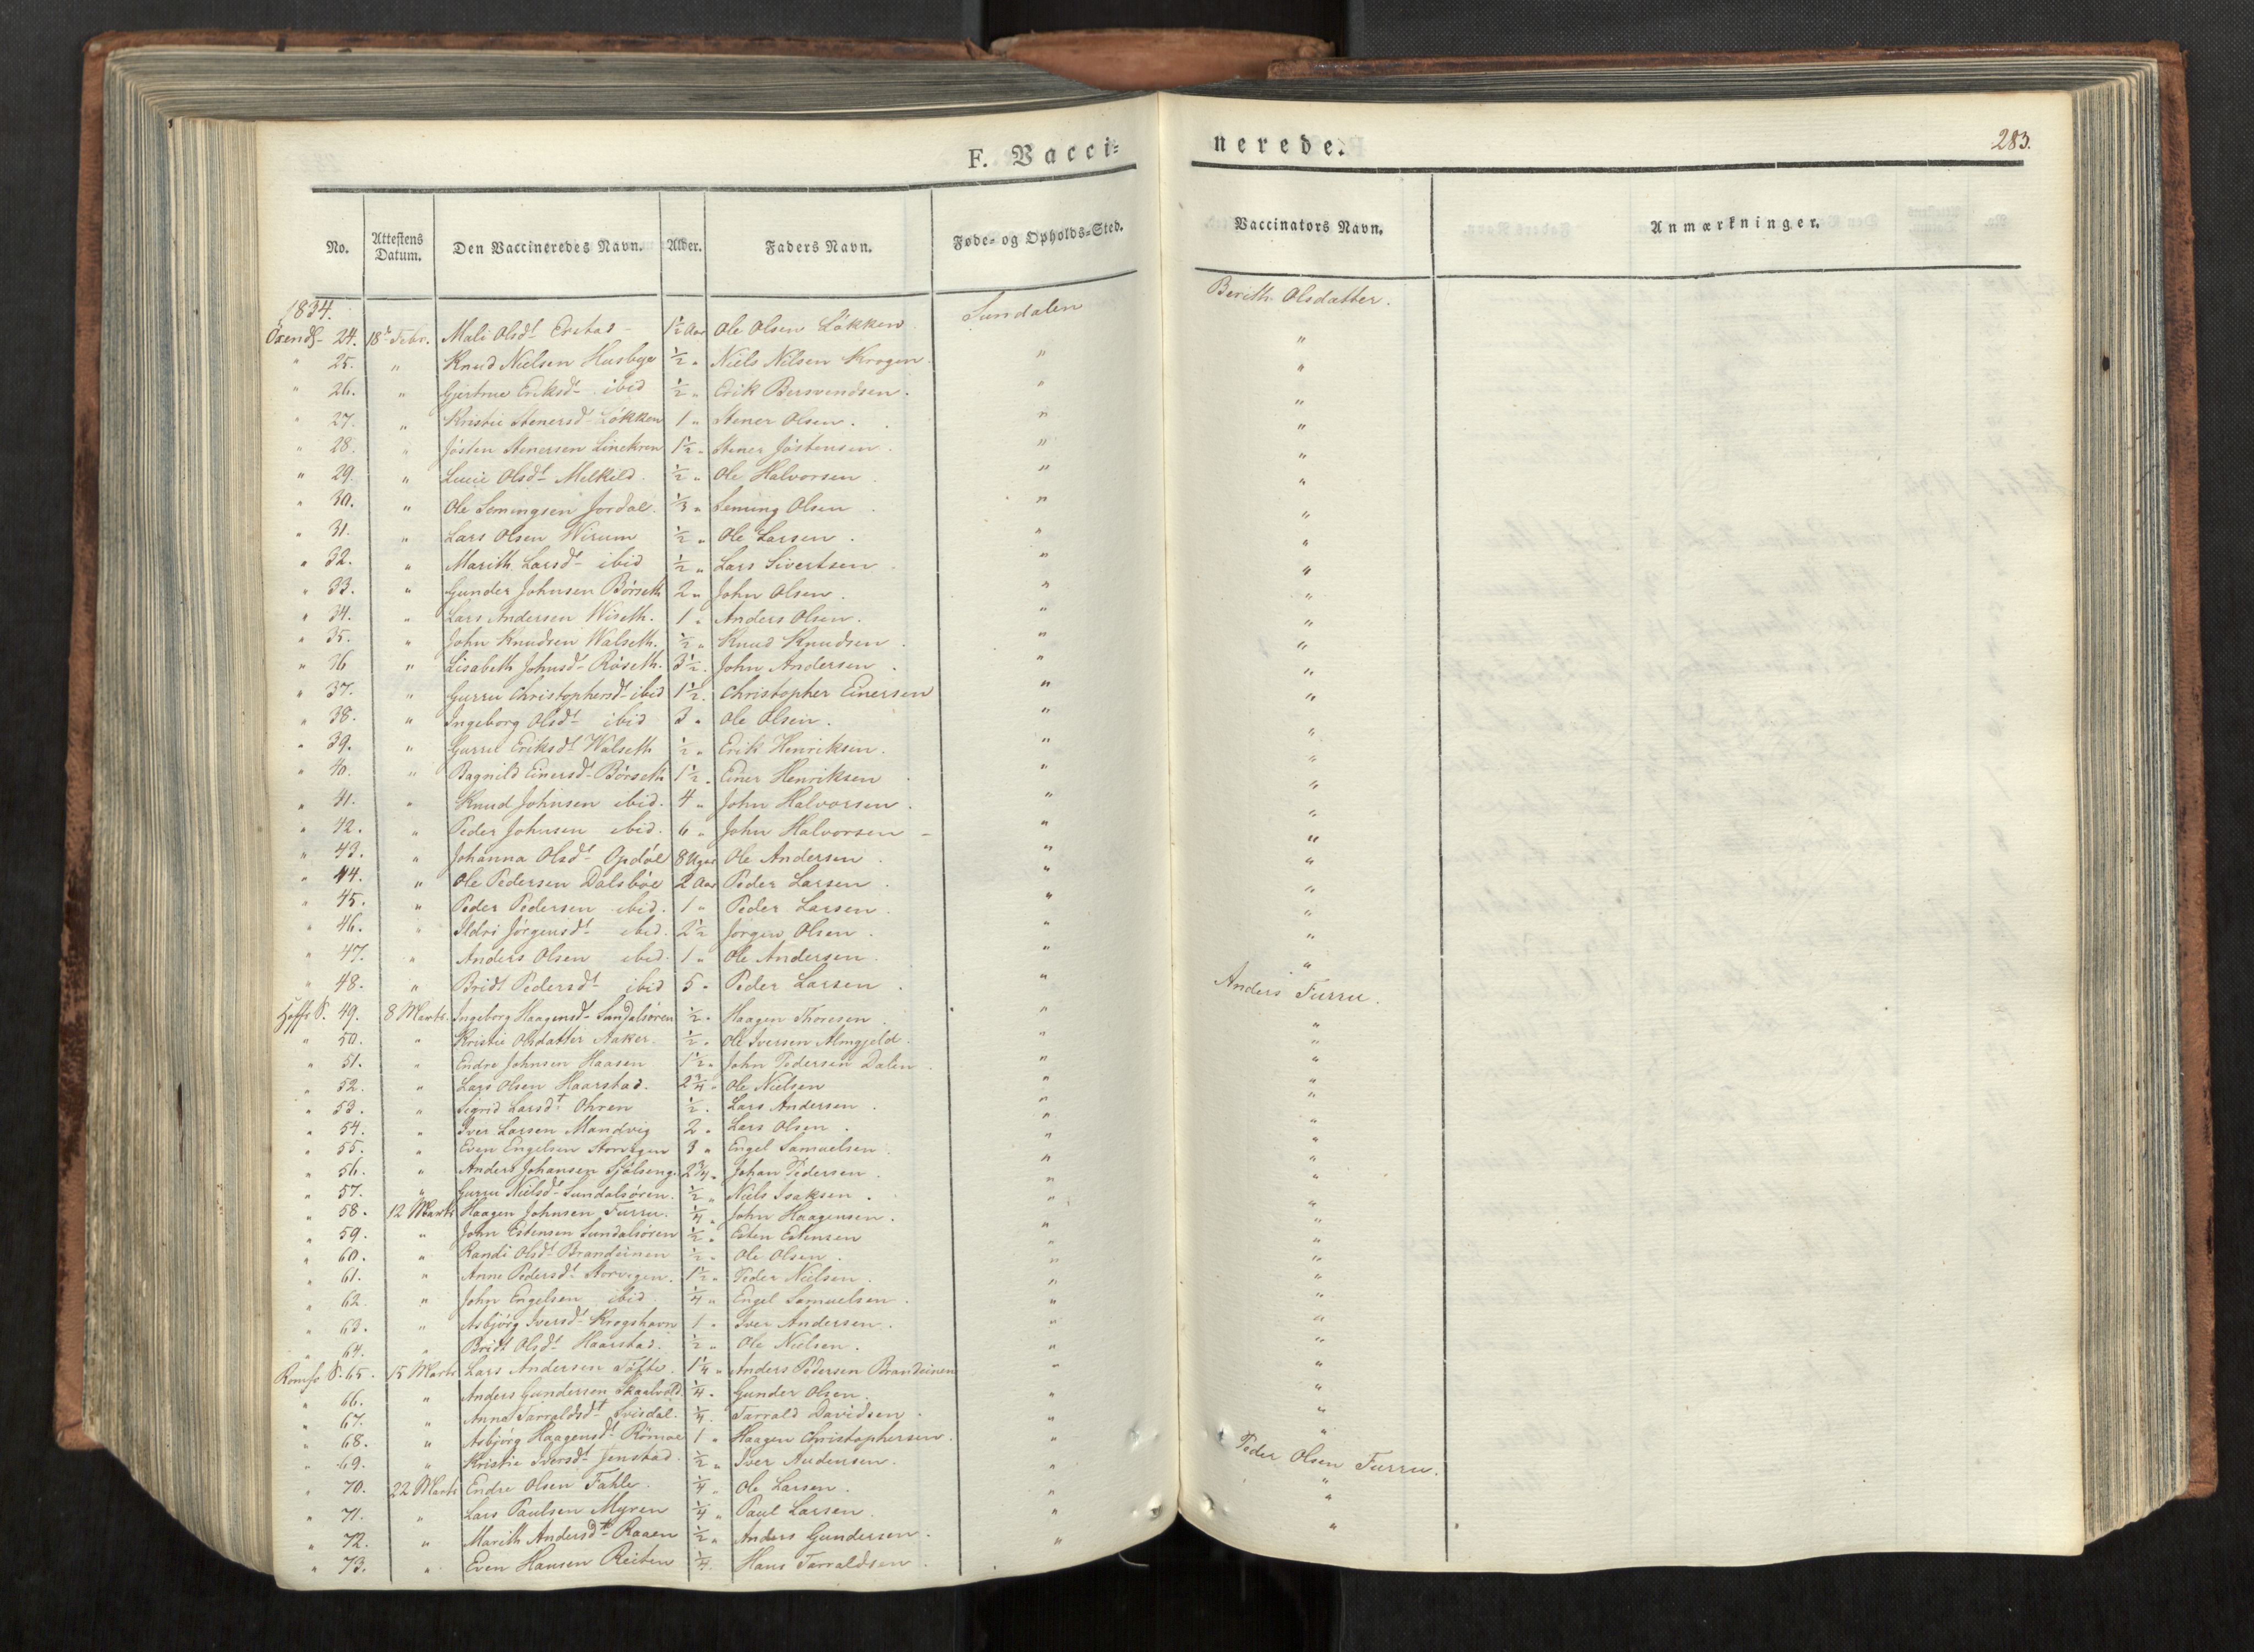 F. Vacci=
nerede.
283.
No. Attestens Datum. Den Vaccineredes Navn. Alder. Faders Navn. Føde= og Opholds=Sted. Vaccinators Navn. Anmærkninger.
1834.
24. 18de Febr. Mali Olsdt 1½ Aar Ole Olsen Løkken Sundalen Berith Olsdatter.
" 25. " Knud Nielsen Husbye ½ " Niels Nilsen Krogen. " "
" 26. " Gjertrue Eriksdt ibid ½ " Erik Bersvendsen. " "
" 27. " Kristie Stenersd Løkken 1 " Stener Olsen. " "
" 28. " Jösten Stenersen 1½ " Stener Jöstensen. " "
" 29. " Lucie Olsdt Melkild. ½ " Ole Halvorsen. " "
" 30. " Ole Lemingsen Jordal. ⅓ " Leming Olsen " "
" 31. " Lars Olsen Wirum ½ " Ole Larsen. " "
" 32. " Marith Larsdt ibid ½ " Lars Sivertsen " "
" 33. " Gunder Johnsen Börseth 2 " John Olsen. " "
" 34. " Lars Andersen Wiseth. 1 " Anders Olsen. " "
" 35. " John Knudsen Walseth. ½ " Knud Knudsen. " "
" 36 " Lisabeth Johnsdt Röseth. 3½ " John Andersen. " "
" 37. " Gurru Christophersdt ibid 1½ " Christopher Einersen " "
" 38. " Ingeborg Olsdt ibid 3 " Ole Olsen. " "
" 39. " Gurru Eriksdt Walseth ½ " Erik Henriksen. " "
" 40. " Ragnild Einersdt Börseth 1½ " Einer Henriksen " "
" 41. " Knud Johnsen ibid. 4 " John Halvorsen. " "
" 42. " Peder Johnsen ibid. 6 " John Halvorsen " "
" 43. " Johanna Olsdt Opdöl 8 Uger Ole Andersen. " "
" 44. " Ole Pedersen Dalsböe 2 Aar Peder Larsen. " "
" 45. " Peder Pedersen ibid. 1 " Peder Larsen. " "
" 46. " Ildri Jörgensdt ibid. 2½ Jörgen Olsen. " "
" 47. " Anders Olsen ibid. 1 " Ole Andersen. " "
" 48. " Bridt Pedersdt ibid 5 " Peder Larsen. " "
49. 8 Marts. Ingeborg Haagensdt Sundalsören ½ " Haagen Thoresen. " Anders Furru.
" 50. " Kristie Olsdatter Aaker. ½ " Ole Iversen Almgjeld. " "
" 51. " Endre Johnsen Haasen 1½ " John Pedersen Dalen. " "
" 52. " Lars Olsen Haarstad. 2¾ " Ole Nielsen " "
" 53. " Sigrid Larsdt Ohren ½ " Lars Andersen. " "
" 54. " Iver Larsen Mandvig 2 " Lars Olsen. " "
" 55. " Even Engelsen Storvigen 3 " Engel Samuelsen. " "
" 56. " Anders Johansen Sjölseng. 2¾ " Johan Pedersen. " "
" 57. " Gurru Nielsdt Sundalsören. ½ " Niels Isaksen. " "
" 58. 12 Marts Haagen Johnsen Furru. ¼ " John Haagensen. " "
" 59. " John Estensen Sundalsören ½ " Esten Estensen " "
" 60. " Randi Olsdt Brandeinen ½ " Ole Olsen. " "
" 61. " Anne Pedersdt Storvigen. 1½ " Peder Nielsen. " "
" 62. " John Engelsen ibid. ¼ " Engel Samuelsen. " "
" 63. " Asbjörg Iversdt Krogshavn 1 " Iver Andersen. " "
" 64. " Bridt Olsdt Haarstad. ½ " Ole Nielsen. " "
Romfo S. 65. 15 Marts Lars Andersen Töfte. 1¼ " Anders Pedersen Brandeinen " "
" 66. " Anders Gundersen Skaalvold. ¼ " Gunder Olsen. " "
" 67. " Anna Tarraldsdt Svisdal. ¼ " Tarrald Davidsen. " "
" 68. " Asbjörg Haagensdt Römoe 1 " Haagen Christophersen. " "
" 69. " Kristie Iversdt Jenstad. ½ " Iver Audensen. " "
" 70. 22 Marts Endre Olsen Fahle. ¼ " Ole Larsen. " Peder Olsen Furru.
" 71. " Lars Paulsen Myren ¼ " Paul Larsen. " "
" 72. " Marith Andersdt Raaen ½ " Anders Gundersen. " "
" 73. " Even Hansen Reiten ¼ " Hans Tarraldsen. " "